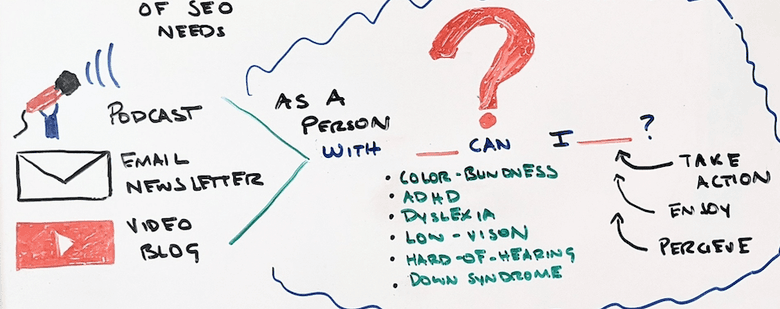 OF SEO
NEEDS
PODCAST
EMAIL
NEWSLETTER
VIDEO
BLOG
AS A
PERSON
WITH ___ CAN I ___ ?
• COLOR-BLINDNESS
• ADHD
• DYSLEXIA
• LOW-VISON
• HARD-OF-HEARING
• DOWN SYNDROME
?
TAKE
ACTION
ENJOY
PERCIEVE